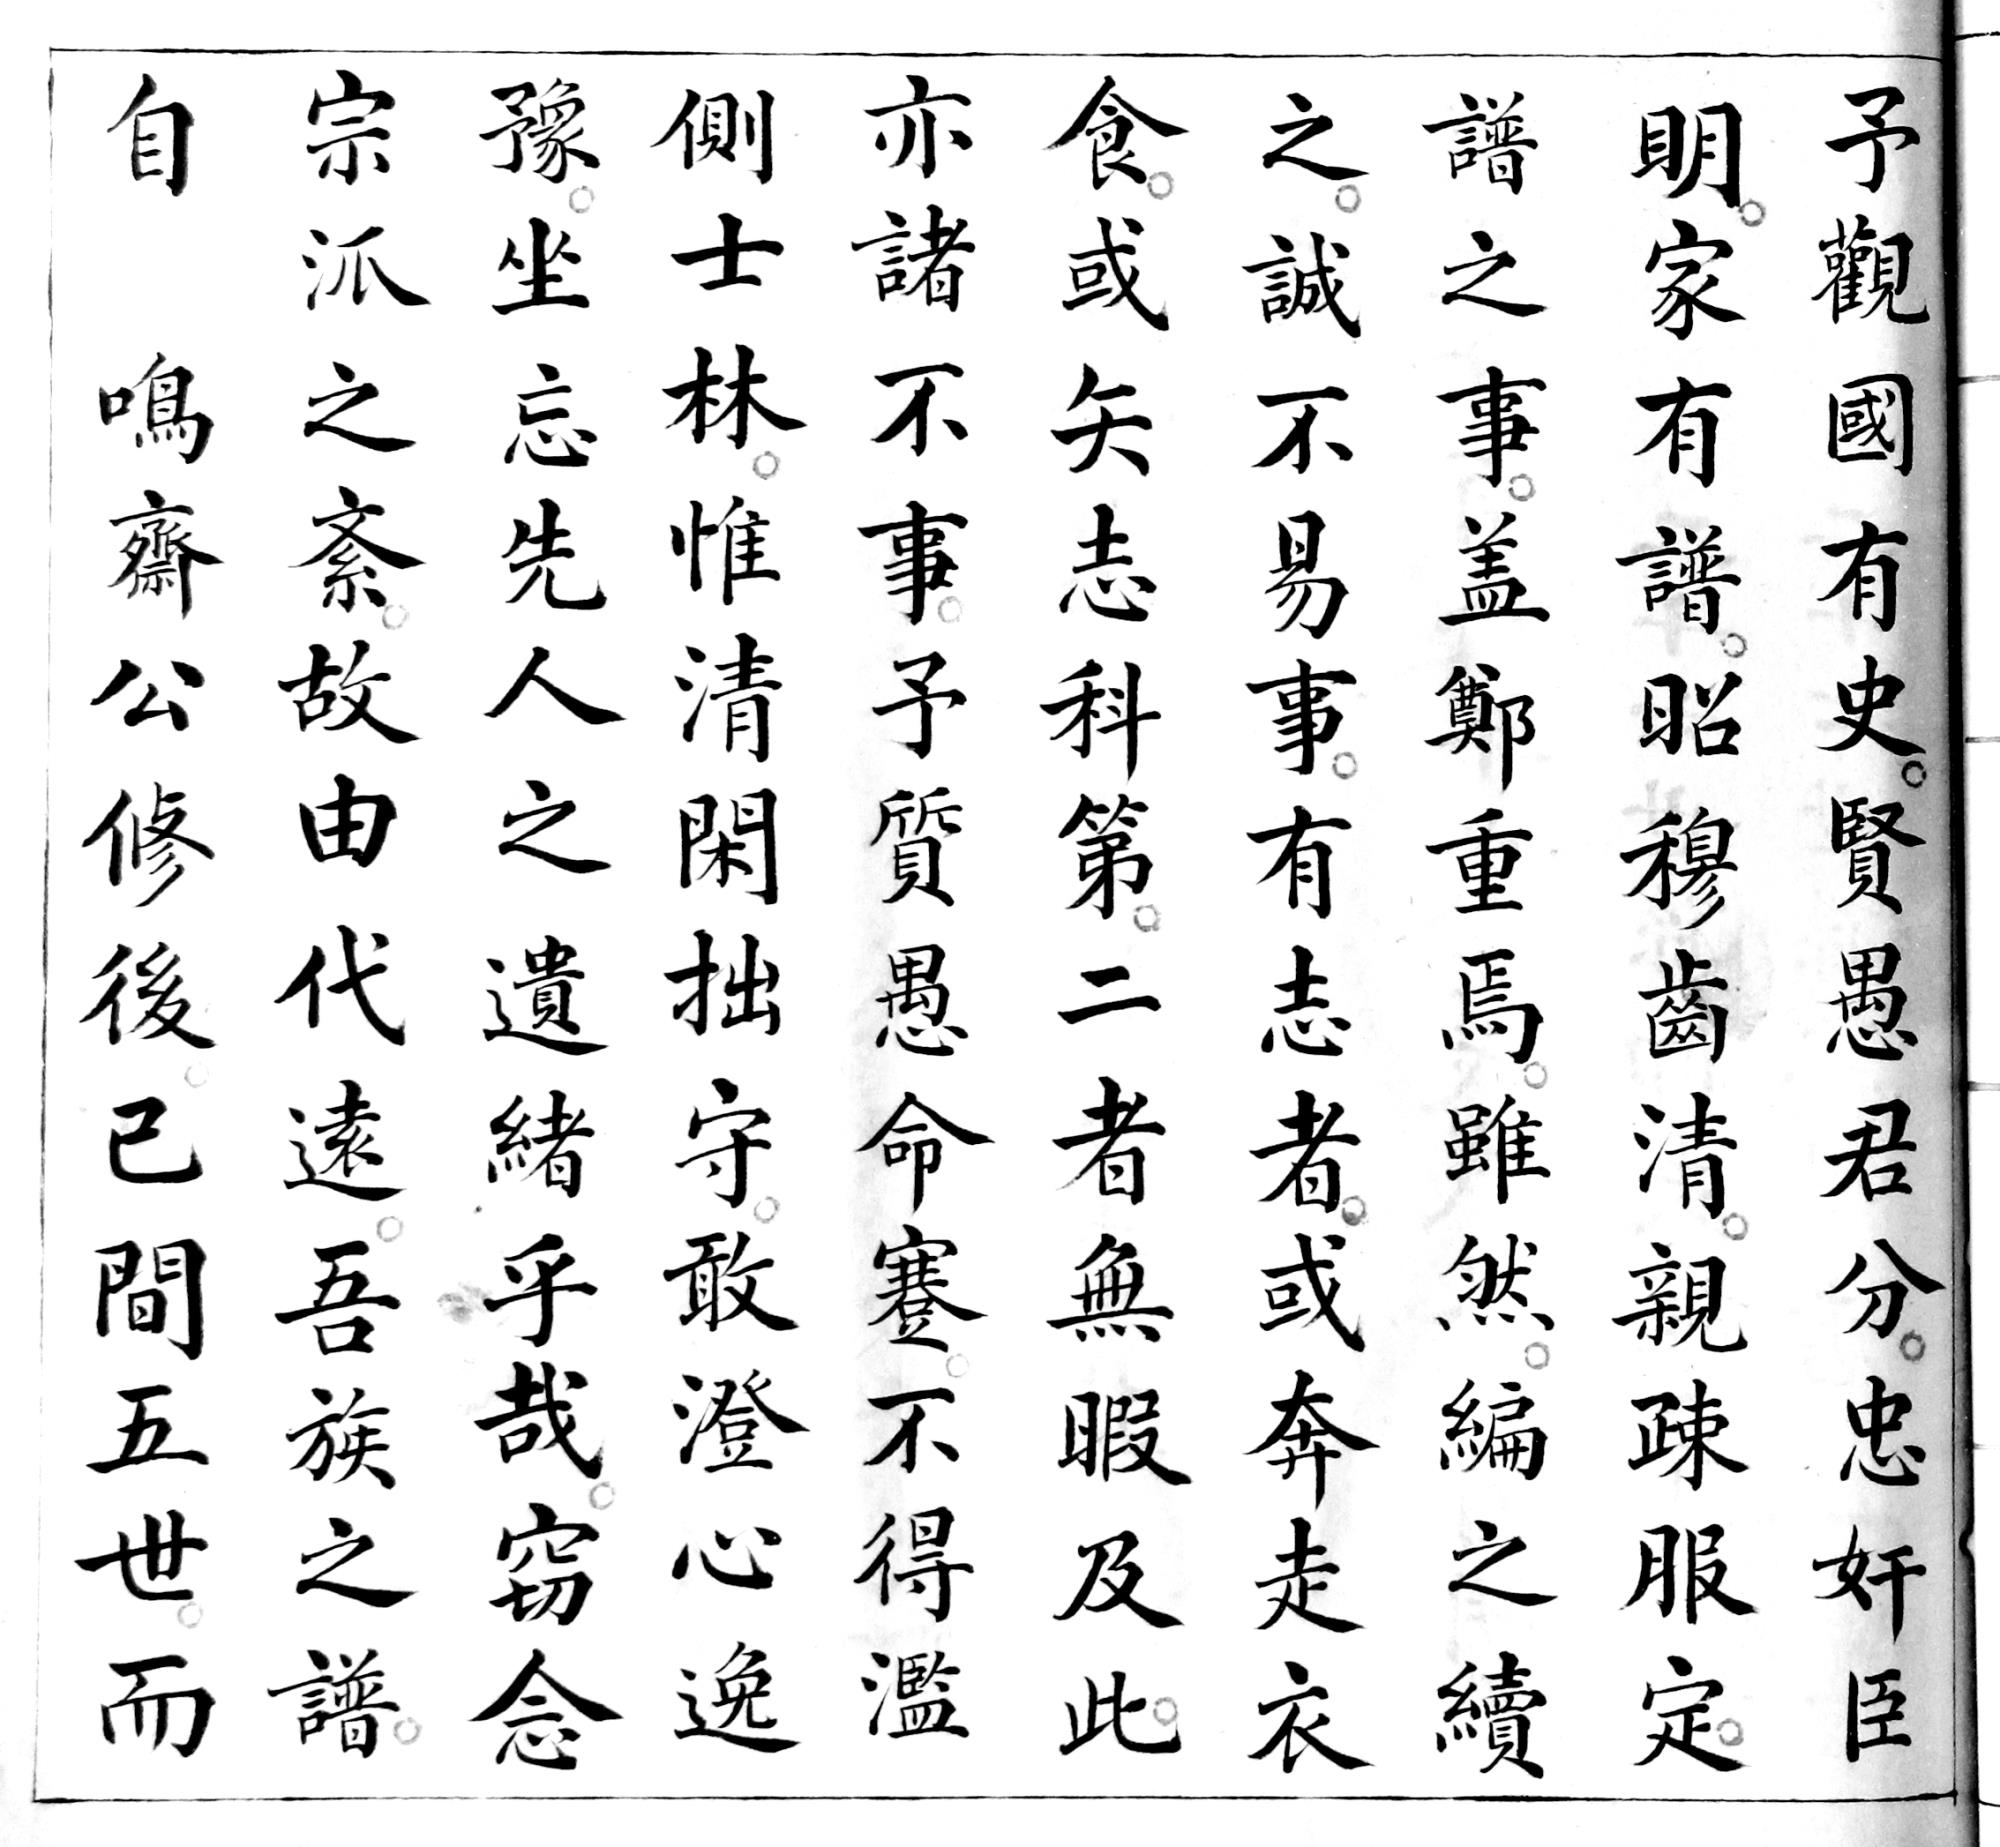 予觀國有史。賢愚君分。忠奸臣
明。家有譜。昭穆齒清。親疎服定。
譜之事。盖鄭重焉。雖然。編之續
之。誠不易事。有志者。或奔走衣
食。或矢志科第。二者無暇及此。
亦諸不事。予質愚命蹇。不得濫
側士林。惟清閑拙守。敢澄心逸
豫。坐忘先人之遺緒乎哉。窃念
宗派之紊。故由代遠。吾族之譜。
自　鳴齋公修後。已間五世。而